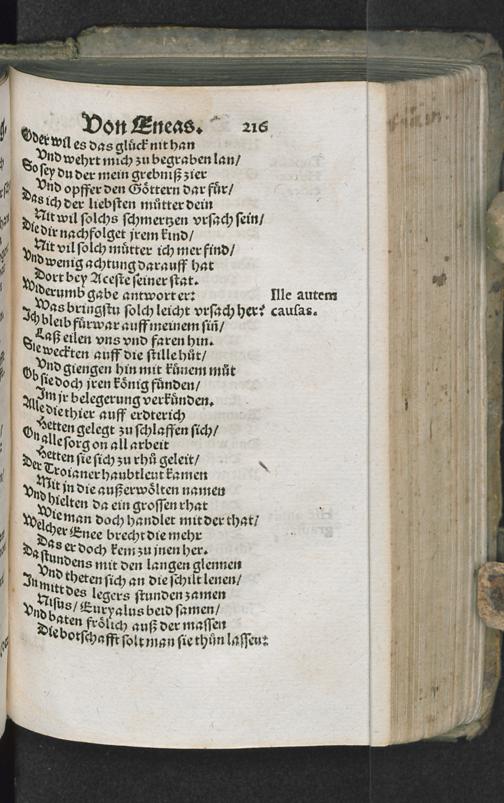 Von Eneas. 216
Oder wil es das glück nit han
Vnd wehrt mich zu begraben lan/
So sey du der mein grebniß zier
Vnd opffer den Göttern dar für/
Das ich der liebsten mütter dein
Nit wil solchs schmertzen vrsach sein/
Die dir nachfolget jrem kind/
Nit vil solch mütter ich mer find/
Vnd wenig achtung darauff hat
Dort bey Aceste seiner stat.
Widerumb gabe antwort er:
Was bringstu solch leicht vrsach her?
Ille autem
causas.
Ich bleib fürwar auff meinem siñ/
Laß eilen vns vnd faren hin.
Sie weckten auff die stille hůt/
Vnd giengen hin mit kůnem můt
Ob sie doch jren könig fünden/
Im jr belegerung verkünden.
Alle die thier auff erdterich
Hetten gelegt zu schlaffen sich/
On alle sorg on all arbeit
Hetten sie sich zu rhů geleit/
Der Troianer haubtleut kamen
Mit jn die außerwölten namen
Vnd hielten da ein grossen rhat
Wie man doch handlet mit der that/
Welcher Enee brecht die mehr
Das er doch kem zu jnen her.
Da stundens mit den langen glennen
Vnd theten sich an die schilt lenen/
In mitt des legers stunden zamen
Nisus/ Euryalus beid samen/
Vnd baten frölich auß der massen
Die botschafft solt man sie thůn lassen: